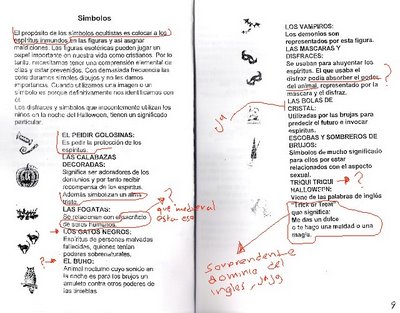 Símbolos
El propósito de los símbolos ocultistas es colocar a los
espíritus inmundos, en las figuras y así asignar
maldiciones. Las figuras esotéricas pueden jugar un
papel importante en nuestra vida como cristianos. Por lo
tanto, necesitamos tener una comprensión elemental de
ellas y estar prevenidos. Con demasiada frecuencia las
consideramos simples dibujos y no les damos
importancia. Cuando utilizamos una imagen o un
símbolo es porque definitivamente nos identificamos con
él.
Los disfraces y símbolos que inocentemente utilizan los
niños en la noche del Halloween, tienen un significado
particular.
EL PEIDIR GOLOSINAS:
Es pedir la protección de los
espíritus.
LAS CALABAZAS
DECORADAS:
Significa ser adoradores de los
demonios y por tanto recibir
recompensa de los espíritus.
Además simbolizan un alma
triste.
?
LAS FOGATAS:
Se relacionan con el sacrificio
de seres humanos.
qué medieval
está eso
LOS GATOS NEGROS:
Espíritus de personas malvadas
fallecidas, quienes tenían
poderes sobrenaturales.
?
EL BUHO:
Animal nocturno cuyo sonido en
la noche es para los brujos un
amuleto contra otros poderes de
las tinieblas.
LOS VAMPIROS:
Los demonios son
representados por esta figura.
LAS MASCARAS Y
DISFRACES:
Se usaban para ahuyentar los
espíritus. El que usaba el
disfraz podía absorber el poder
del animal, representado por la
máscara y el disfraz.
?
LAS BOLAS DE
CRISTAL:
ja
Utilizadas por las brujas para
predecir el futuro o invocar
espíritus.
ESCOBAS Y SOMBREROS DE
BRUJOS:
Símbolos de mucho significado
para ellos por estar
relacionados con el aspecto
sexual.
TRIQUI TRIQUI
?
HALLOWEEN:
Viene de las palabras de inglés
"Trick or Treat"
que significa:
Me das un dulce
o te hago una maldad o una
magia.
Sorprendente
dominio del
inglés, jaja
9